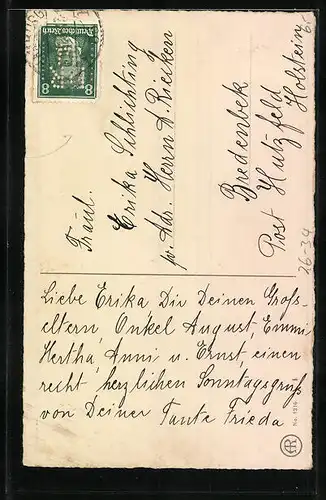 Deutsches Reich
8 8
Fräul.
Erika Schlichting
pr. Adr. Herrn A. Riecken
Bredenbek
Post Hutzfeld
Holstein
26-34
Liebe Erika Dir Deinen Groß-
eltern, Onkel August, Emmi
Hertha, Anni u. Ernst, einen
recht herzlichen Sonntagsgruß
von Deiner Tante Frieda